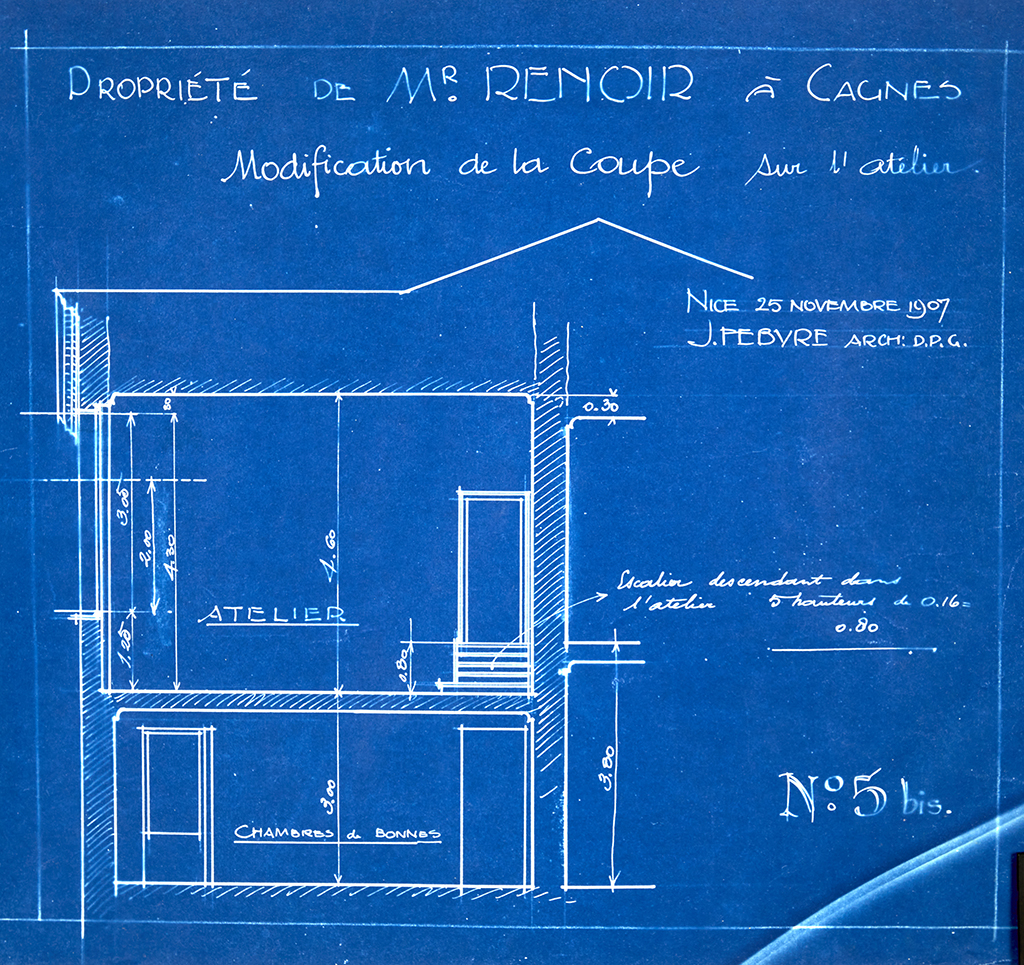 PROPRIÉTÉ DE MR. RENOIR À CAGNES
Modification de la Coupe sur l'atelier.
NICE 25 NOVEMBRE 1907
J. FEBVRE ARCH: D.P.G.
80
0.30
3.05
2.00
4.30
4.60
ATELIER
Escalier descendant dans
l'atelier 5 hauteurs de 0.16=
0.80
1.25
0.80
3.80
3.00
CHAMBRES de BONNES
No. 5 bis.